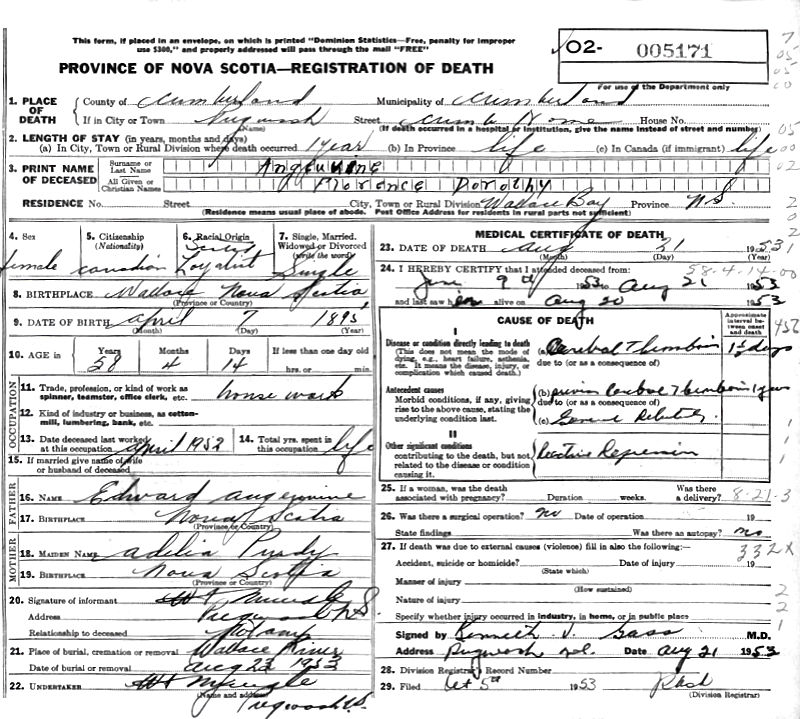 This form, if placed in an envelope, on which is printed "Dominion Statistics—Free, penalty for improper
use $300," and properly addressed will pass through the mail "FREE"
O2- 005171
PROVINCE OF NOVA SCOTIA—REGISTRATION OF DEATH
For use of the Department only
1. PLACE OF DEATH County of Cumberland Municipality of Cumberland
If in City or Town Pugwash Street Cumb. Home House No.
(Name) (If death occurred in a hospital or institution, give the name instead of street and number)
2. LENGTH OF STAY (in years, months and days)
(a) In City, Town or Rural Division where death occurred 1 year (b) In Province life (c) In Canada (if immigrant) life
3. PRINT NAME OF DECEASED Surname or Last Name Angevine
All Given or Christian Names Florence Dorothy
RESIDENCE No. Street City, Town or Rural Division Wallace Bay Province N.S.
(Residence means usual place of abode. Post Office Address for residents in rural parts not sufficient)
4. Sex 5. Citizenship (Nationality) 6. Racial Origin 7. Single, Married, Widowed or Divorced (write the word)
female Canadian Loyalist Single
8. BIRTHPLACE Wallace Nova Scotia
(Province or Country)
9. DATE OF BIRTH April 7 1895
(Month) (Day) (Year)
10. AGE in Years Months Days If less than one day old
58 4 14 hrs. or min.
OCCUPATION
11. Trade, profession, or kind of work as spinner, teamster, office clerk, etc. house work
12. Kind of industry or business, as cotton-mill, lumbering, bank, etc.
13. Date deceased last worked at this occupation April 1952 14. Total yrs. spent in this occupation life
15. If married give name of wife or husband of deceased
FATHER
16. NAME Edward Angevine
17. BIRTHPLACE Nova Scotia
(Province or Country)
MOTHER
18. MAIDEN NAME Adelia Purdy
19. BIRTHPLACE Nova Scotia
(Province or Country)
20. Signature of informant
Address Pugwash N.S.
Relationship to deceased
21. Place of burial, cremation or removal Wallace River
Date of burial or removal Aug 23 1953
22. UNDERTAKER
(Name and address)
Pugwash N.S.
MEDICAL CERTIFICATE OF DEATH
23. DATE OF DEATH Aug 21 1953
(Month) (Day) (Year)
24. I HEREBY CERTIFY that I attended deceased from: 58-4-14-00
9th 1953 to Aug 21 1953
and last saw her alive on Aug 20 1953
CAUSE OF DEATH
Approximate interval between onset and death
I
Disease or condition directly leading to death
(This does not mean the mode of dying, e.g., heart failure, asthenia, etc. It means the disease, injury, or complication which caused death.)
(a) Cerebral Thrombosis 1½ days
due to (or as a consequence of)
Antecedent causes
Morbid conditions, if any, giving rise to the above cause, stating the underlying condition last.
(b) previous Cerebral Thrombosis 1 year
due to (or as a consequence of)
(c) General Debility
II
Other significant conditions
contributing to the death, but not related to the disease or condition causing it.
Depression
25. If a woman, was the death associated with pregnancy? Duration weeks. Was there a delivery? 8-21-3
26. Was there a surgical operation? no Date of operation 19
State findings Was there an autopsy? no
27. If death was due to external causes (violence) fill in also the following:— 332X
Accident, suicide or homicide? Date of injury 19
(State which)
Manner of injury
(How sustained)
Nature of injury
Specify whether injury occurred in industry, in home, or in public place
Signed by Kenneth V. Gass M.D.
Address Pugwash N.S. Date Aug 21 1953
28. Division Registrar's Record Number
29. Filed Oct 5th 1953
(Division Registrar)